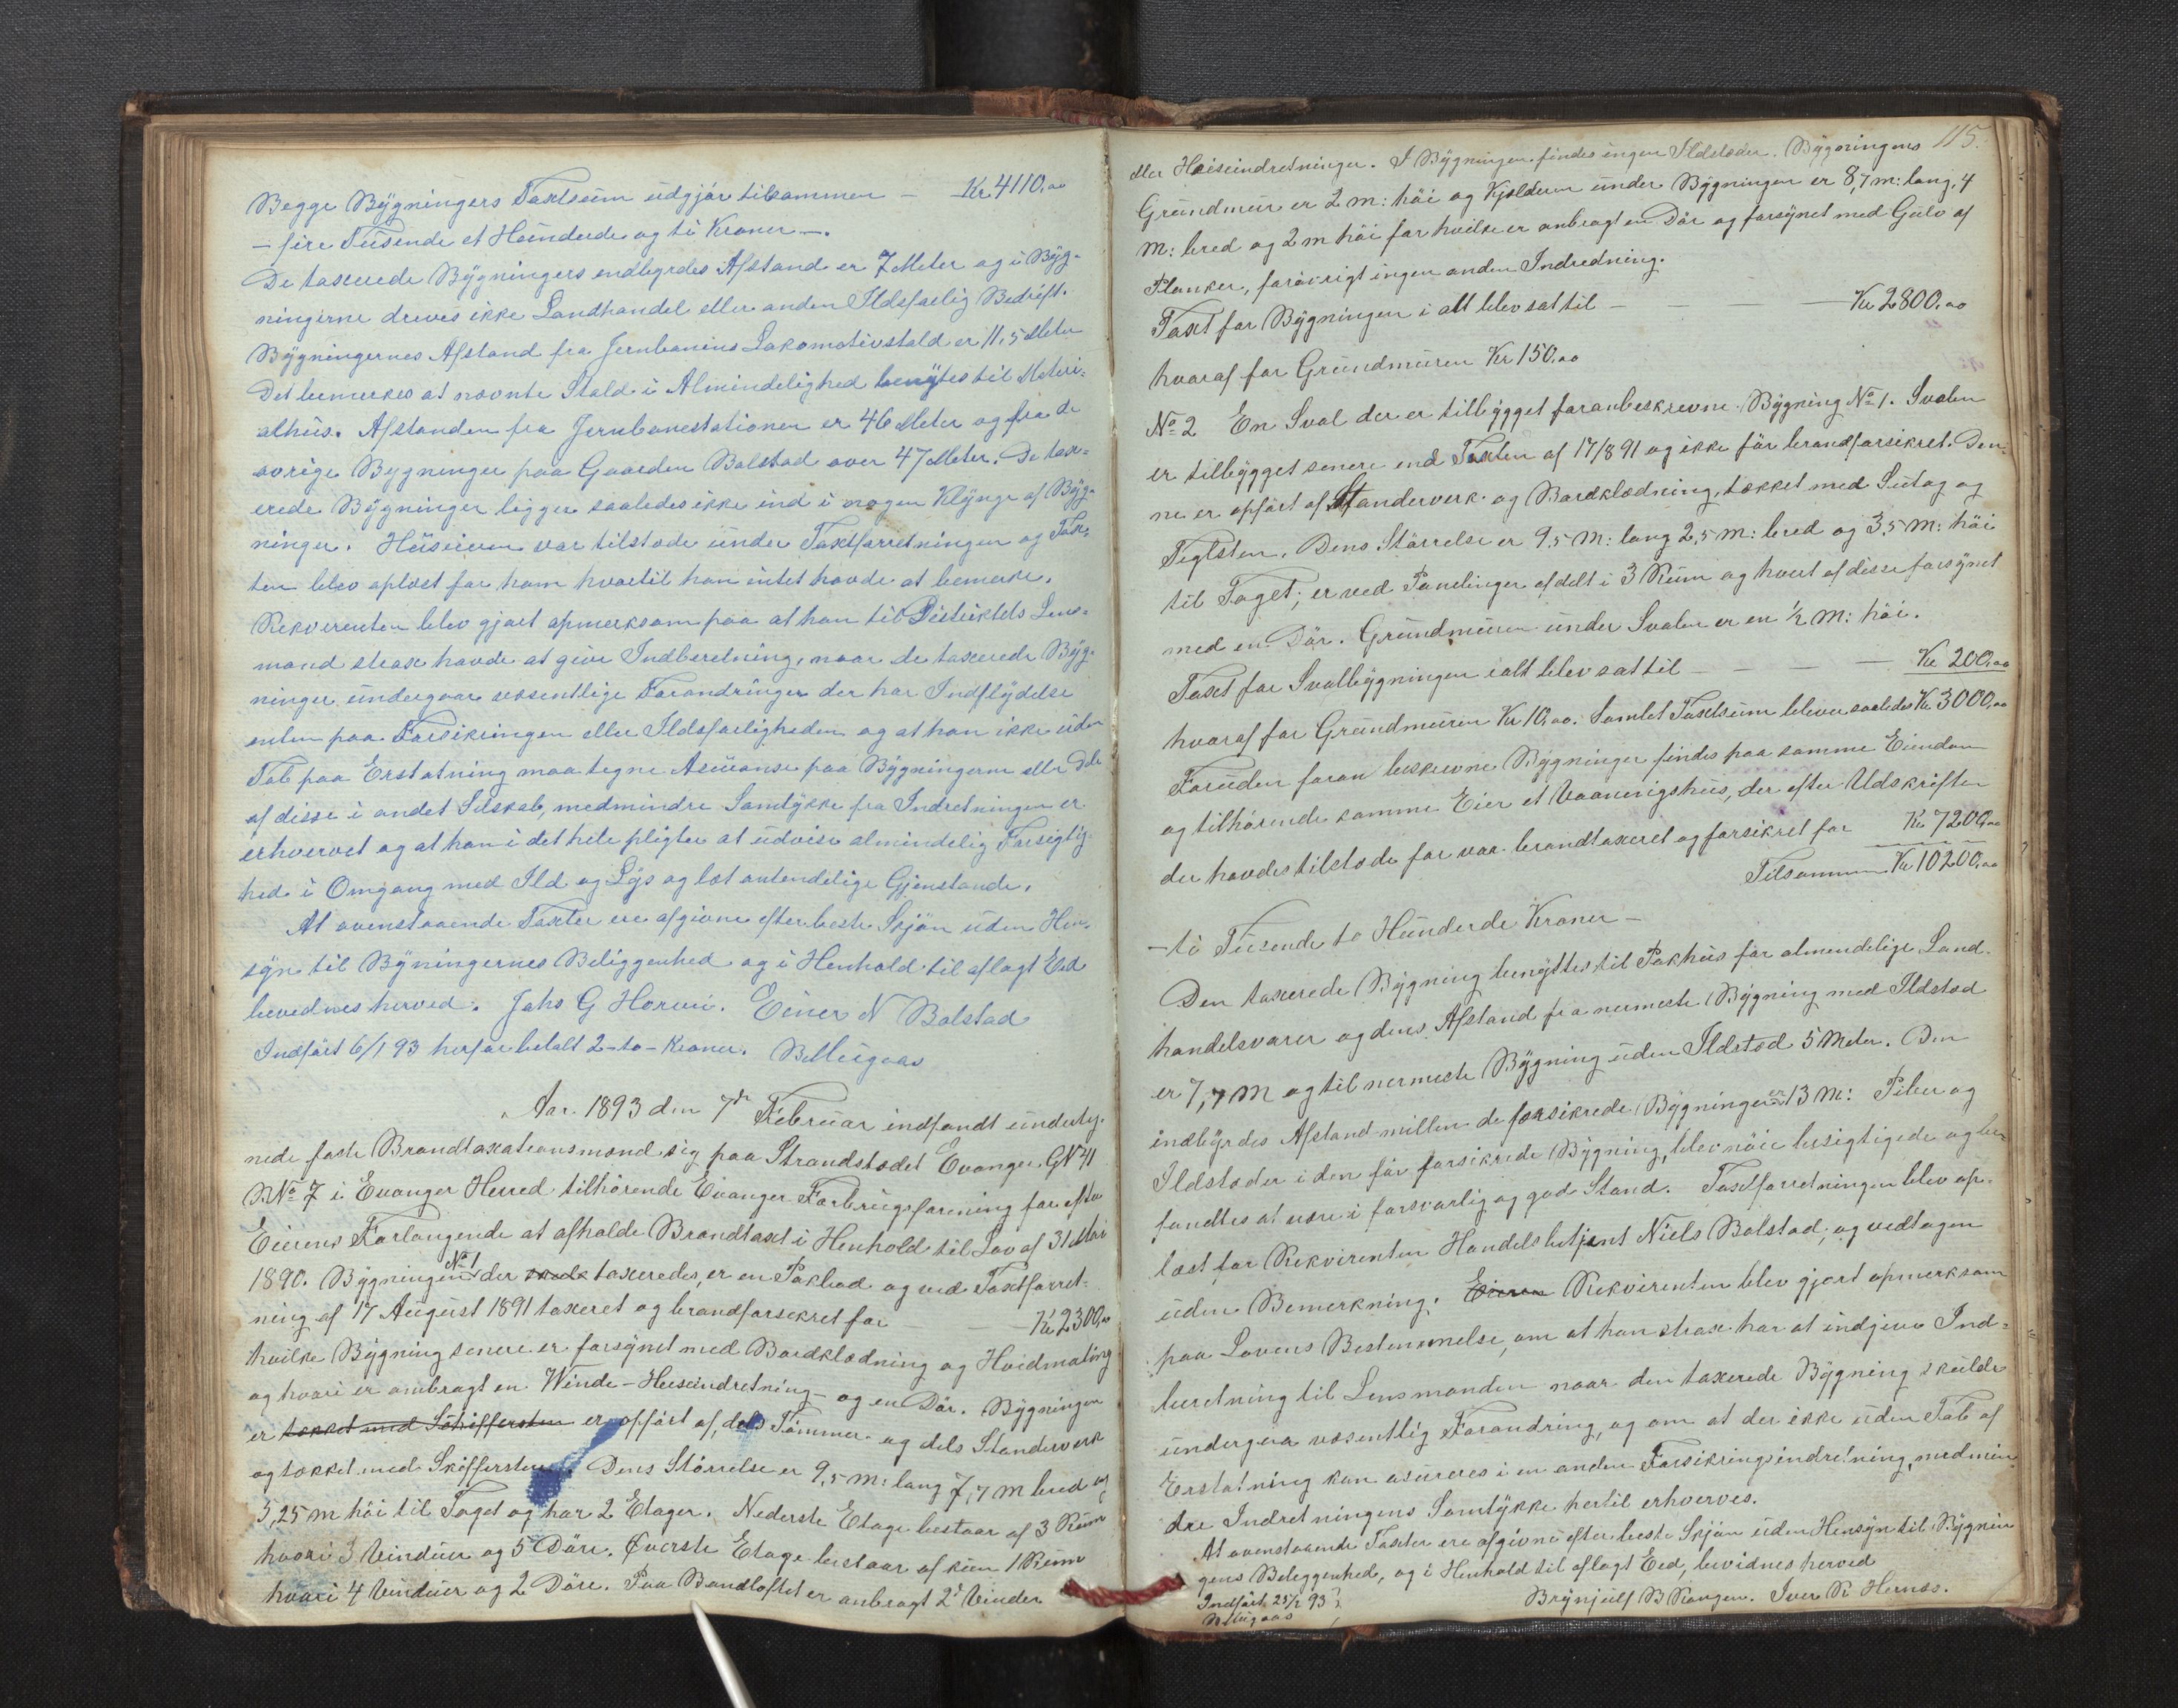 Begge Bygningers Taxtsum udgjør tilsammen — Kr 4110,00
— fire Tusende et Hundrede og ti Kroner —.
De taxerede Bygningers indbyrdes Afstand er 7 Meter og i Byg-
ningerne dreves ikke Landhandel eller anden Ildsfarlig Bedrift.
Bygningernes Afstand fra Jernbanens Lokomotivstald er 11,5 Meter
Det bemerkes at nævnte Stald i Almindelighed benyttes til Materi-
alhus. Afstanden fra Jernbanestationen er 46 Meter og fra de
øvrige Bygninger paa Gaarden Bolstad over 47 Meter. De tax-
erede Bygninger ligger saaledes ikke ind i nogen Klynge af Byg-
ninger. Huseieren var tilstede under Taxtforretningen og Tax-
ten blev oplæst for ham hvortil han intet havde at bemerke.
Rekvirenten blev gjort opmerksom paa at han til Distriktets Lens-
mand strax havde at give Indberetning, naar de taxerede Byg-
ninger undergaar væsentlige Forandringer der har Indflydelse
enten paa Forsikringen eller Ildsfarligheden og at han ikke uden
Tab paa Erstatning maa tegne Assuranse paa Bygningerne eller Dele
af disse i andet Selskab, medmindre Samtykke fra Indretningen er
erhvervet og at han i det hele pligter at udvise almindelig Forsigtig-
hed i Omgang med Ild og Lys og let antendelige Gjenstande.
At ovenstaaende Taxter ere afgivne efter beste Skjøn uden Hen-
syn til Bygningernes Beliggenhed og i Henhold til aflagt Eed
bevidnes herved. Johs G Horvei. Einer N Bolstad
Indført 6/1 93 herfor betalt 2 - to - Kroner. BMugaas
Aar 1893 den 7de Februar indfandt underteg-
nede faste Brandtaxationsmænd sig paa Strandstedet Evanger GN 41
BNo 7 i Evanger Herred tilhørende Evanger Forbrugsforening for efter
Eierens Forlangende at afholde Brandtaxt i Henhold til Lov af 31 Mai
1890. Bygningen No 1 der skulde taxeredes, er en Pakbod og ved Taxtforret-
ning af 17 August 1891 taxeret og brandforsikret for — — Kr 2300,00
hvilke Bygning senere er forsynet med Bordklædning og Hvidmaling
og hvori er anbragt en Winde-Heiseindretning - og en Dør. Bygningen
er tækket med Schiffersten er opført af, dels Tømmer og dels Standerverk
og tækket med Skiffersten. Dens Størrelse er 9,5 m: lang 7,7 m bred og
5,25 m høi til Taget og har 2 Etager. Nederste Etage bestaar af 3 Rum
hvori 3 Vinduer og 5 Døre. Øverste Etage bestaar af kun 1 Rum
hvori 4 Vinduer og 2 Døre. Paa Bandloftet er anbragt 2de Vinder
115.
eller Heiseindretninger. I Bygningen findes ingen Ildsteder. Bygningens
Grundmur er 2 m: høi og Kjelderen under Bygningen er 8,7 m: lang, 4
m: bred og 2 m høi for hvilke er anbragt en Dør og forsynet med Gulv af
Planker, forøvrigt ingen anden Indredning.
Taxt for Bygningen i alt blev sat til — — — — Kr 2800,00
hvoraf for Grundmuren Kr 150,00
No 2 En Sval der er tilbygget foranbeskrevne Bygning No 1. Svalen
er tilbygget senere end Taxten af 17/8 91 og ikke før brandforsikret. Den-
ne er opført af Standerverk og Bordklædning, tækket med Sutag og
Teglsten. Dens Størrelse er 9,5 M: lang 2,5 m: bred og 3,5 m: høi
til Taget; er ved Panelinger afdelt i 3 Rum og hvert af disse forsynet
med en Dør. Grundmuren under Svalen er en ½ M: høi.
Taxt for Svalbygningen ialt blev sat til — — — — Kr 200,00
hvoraf for Grundmuren Kr 10,00. Samlet Taxtsum bliver saaledes Kr 3000,00
Foruden foran beskrevne Bygninger findes paa samme Eiendom
og tilhørende samme Eier et Vaaningshus, der efter Udskriften
der havdes tilstede for var brandtaxeret og forsikret for Kr 7200,00
Tilsammen Kr 10200,00
— ti Tusende to Hunderde Kroner —
Den taxerede Bygning benyttes til Pakhus for almendelige Land-
handelsvarer og dens Afstand fra nermeste Bygning med Ildsted
er 7,7 M og til nermeste Bygning uden Ildsted 5 Meter. Den
indbyrdes Afstand mellem de forsikrede Bygninger er 13 M: Piber og
Ildsteder i den før forsikrede Bygning, blev nøie besigtigede og be-
fandtes at være i forsvarlig og god Stand. Taxtforretningen blev op-
læst for Rekvirenten Handelsbetjent Niels Bolstad, og vedtagen
uden Bemerkning. Eieren Rekvirenten blev gjort opmerksom
paa Lovens Bestemmelse, om at han strax har at indgive Ind-
beretning til Lensmanden naar den taxerede Bygning skulde
undergaa væsentlig Forandring, og om at der ikke uden Tab af
Erstatning kan asureres i en anden Forsikringsindretning, medmin-
dre Indretningens Samtykke hertil erhverves.
At ovenstaaende Taxter ere afgivne efter beste Skjøn uden Hensyn til Bygnin
gens Beleggenhed, og i Henhold til aflagt Eed, bevidnes herved
Brynjulf B Kongen. Iver K Hernes.
Indført 25/2 93
BMugaas